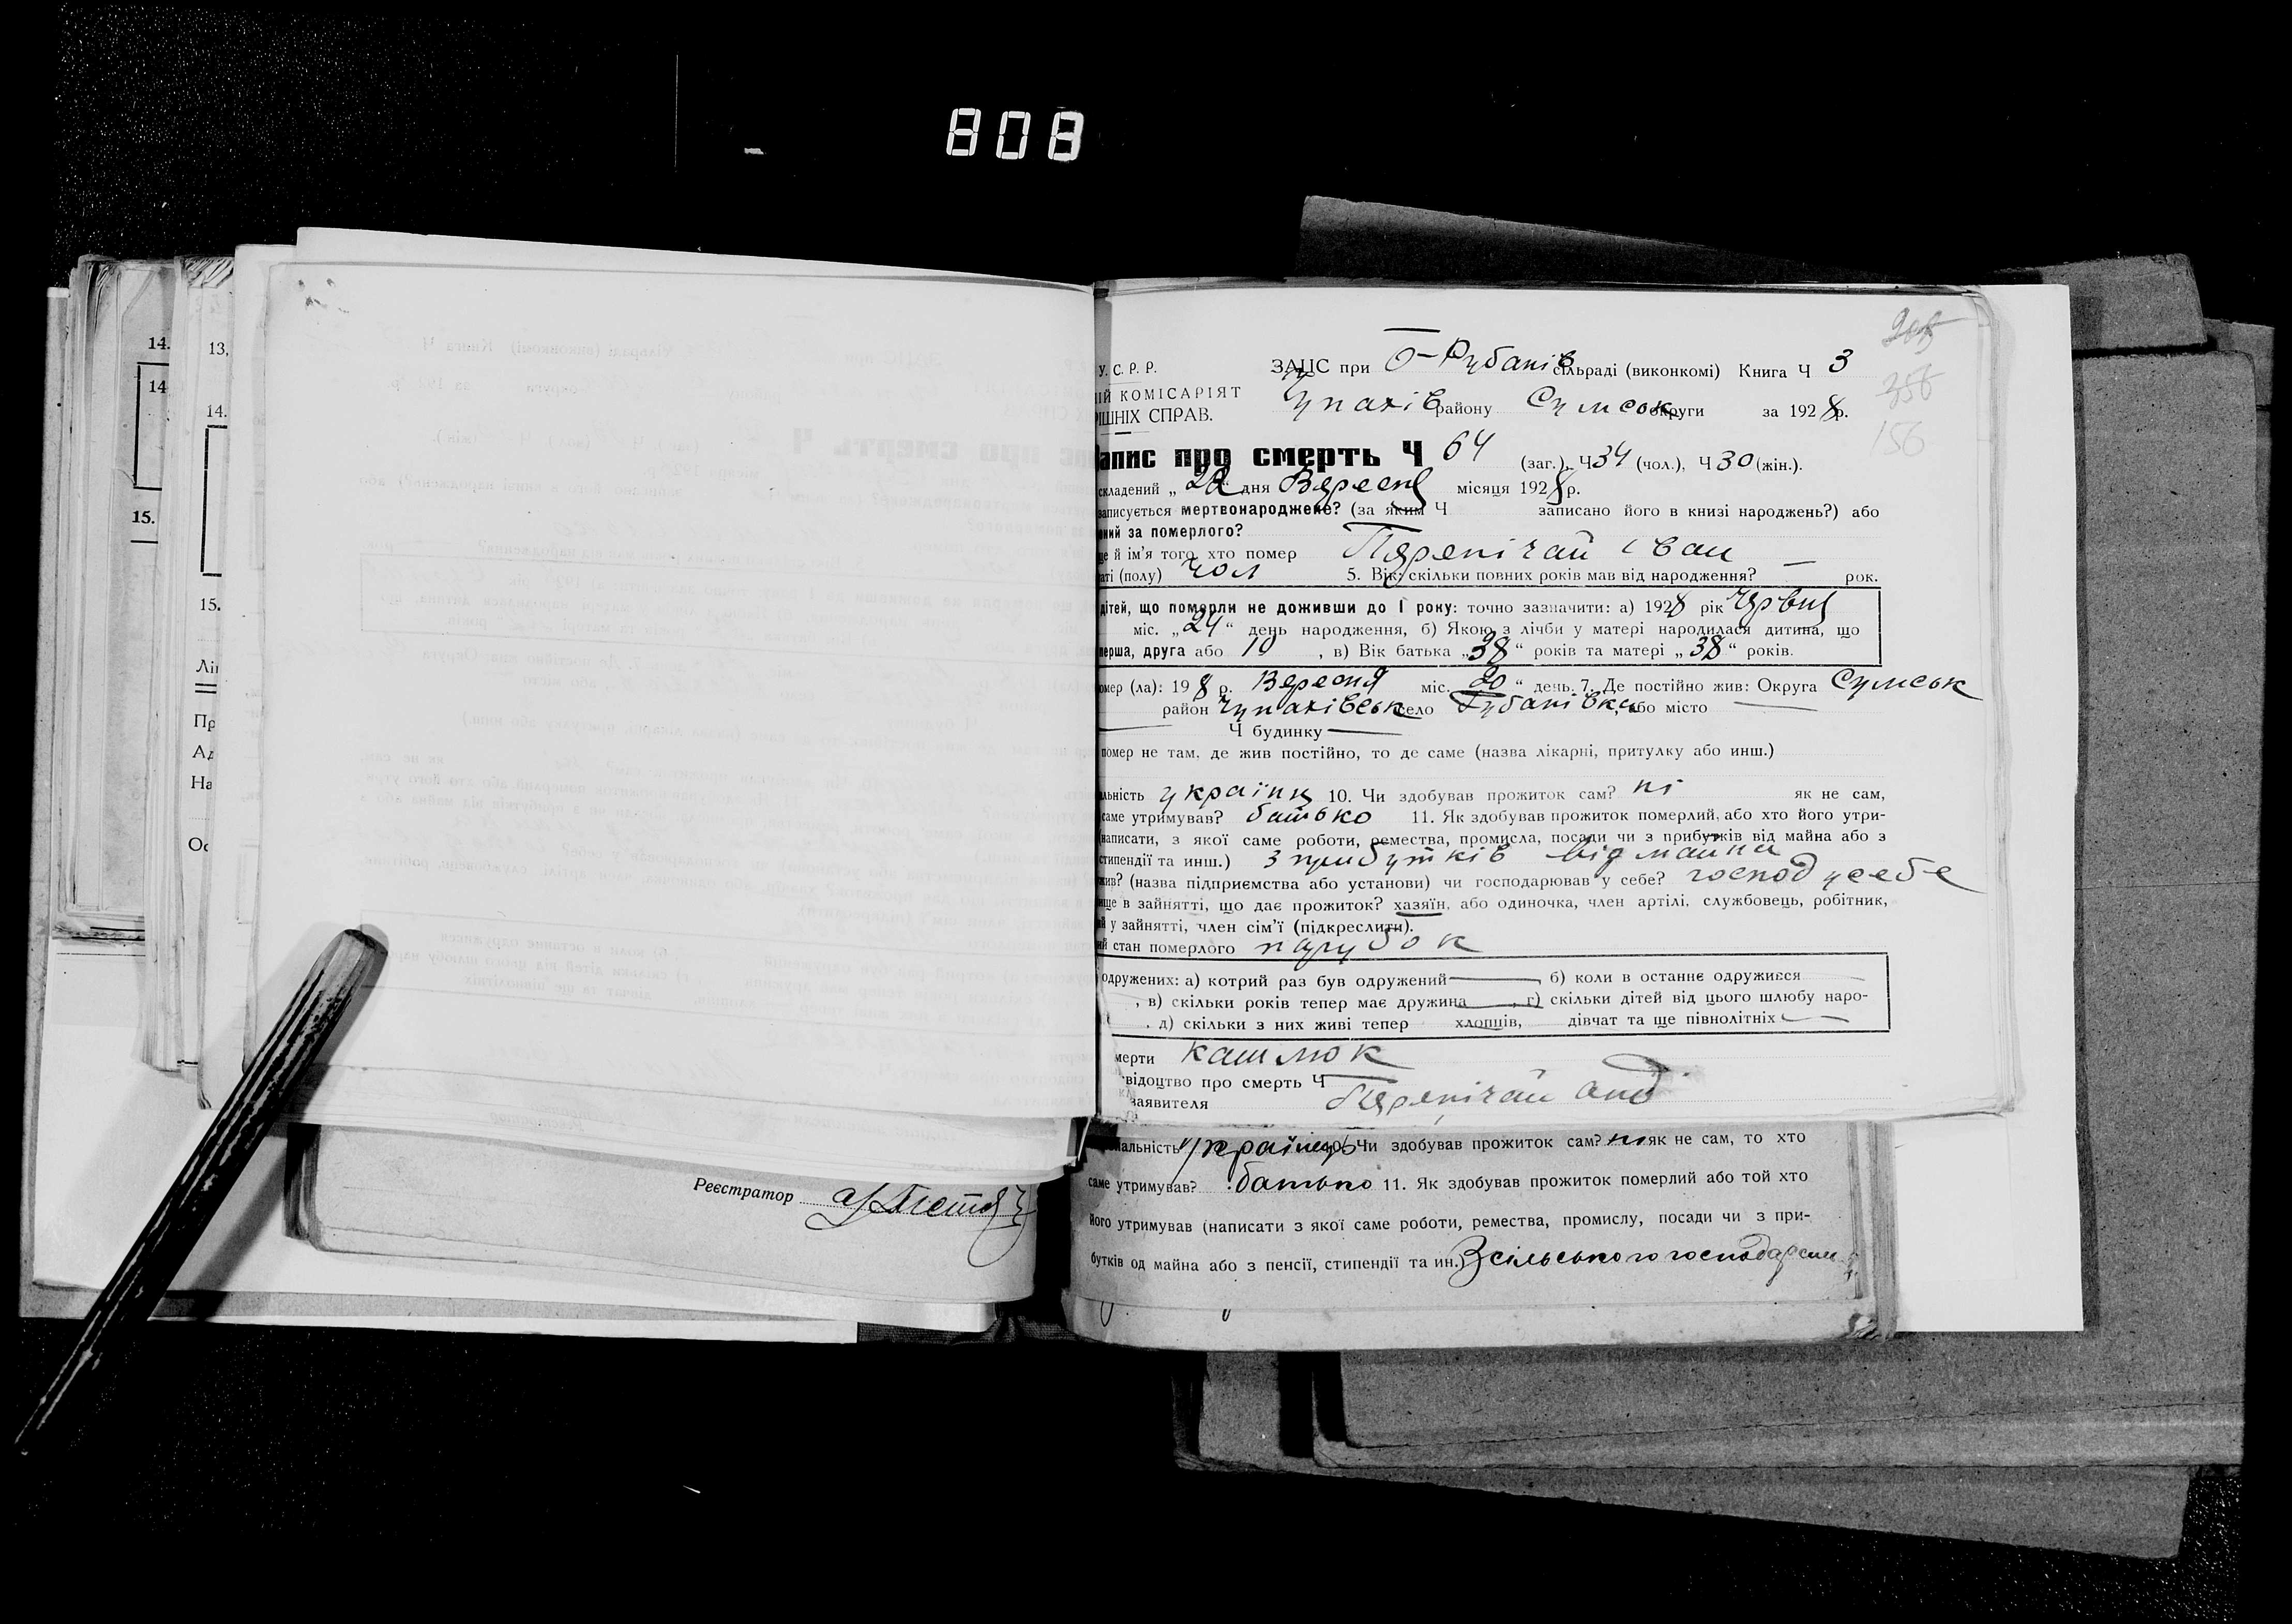 808
14.
13,
14
14.
15.
15.
Лі
Пр
Ад
На
Ос
Реєстратор
У. С. Р. Р. ЗАЦС при Рубанів сільраді (виконкомі) Книга Ч 3
ИЙ КОМІСАРІЯТ Чупахів району Сумськ округи за 1928 р.
РІШНІХ СПРАВ.
356
156
апис про смерть Ч 64 (заг.), Ч 34 (чол.), Ч 30 (жін.).
складений „22“ дня Вересня місяця 1928 р.
записується мертвонароджене? (за яким Ч записано його в книзі народжень?) або
ний за померлого?
ще й ім'я того, хто помер Перепічай Іван
таті (полу) чол 5. Вік: скільки повних років мав від народження? — рок.
дітей, що померли не доживши до 1 року: точно зазначити: а) 1928 рік Червня
міс. „24“ день народження, б) Якою з лічби у матері народилася дитина, що
перша, друга або 10 , в) Вік батька „38“ років та матері „38“ років.
омер (ла): 198 р. Вересня міс. „20“ день. 7. Де постійно жив: Округа Сумськ
район Чупахівськ село Рубанівка, або місто —
Ч будинку —
помер не там, де жив постійно, то де саме (назва лікарні, притулку або инш.)
льність україн 10. Чи здобував прожиток сам? ні як не сам,
саме утримував? батько 11. Як здобував прожиток померлий, або хто його утри-
написати, з якої саме роботи, ремества, промисла, посади чи з прибутків від майна або з
стипендії та инш.) з прибутків від майна
жив? (назва підприємства або установи) чи господарював у себе? господ у себе
ище в зайнятті, що дає прожиток? хазяїн, або одиночка, член артілі, службовець, робітник,
ий у зайнятті, член сім'ї (підкреслити).
ий стан померлого парубок
одружених: а) котрий раз був одружений — б) коли в останнє одружився —
, в) скільки років тепер має дружина —, г) скільки дітей від цього шлюбу наро-
, д) скільки з них живі тепер хлопців, дівчат та ще півнолітніх —
мерти кашлюк
відоцтво про смерть Ч —
заявителя Перепічай
нальність українець 10. Чи здобував прожиток сам? ні як не сам, то хто
саме утримував? батько 11. Як здобував прожиток померлий або той хто
його утримував (написати з якої саме роботи, ремества, промислу, посади чи з при-
бутків од майна або з пенсії, стипендії та ин.) З сільського господарства